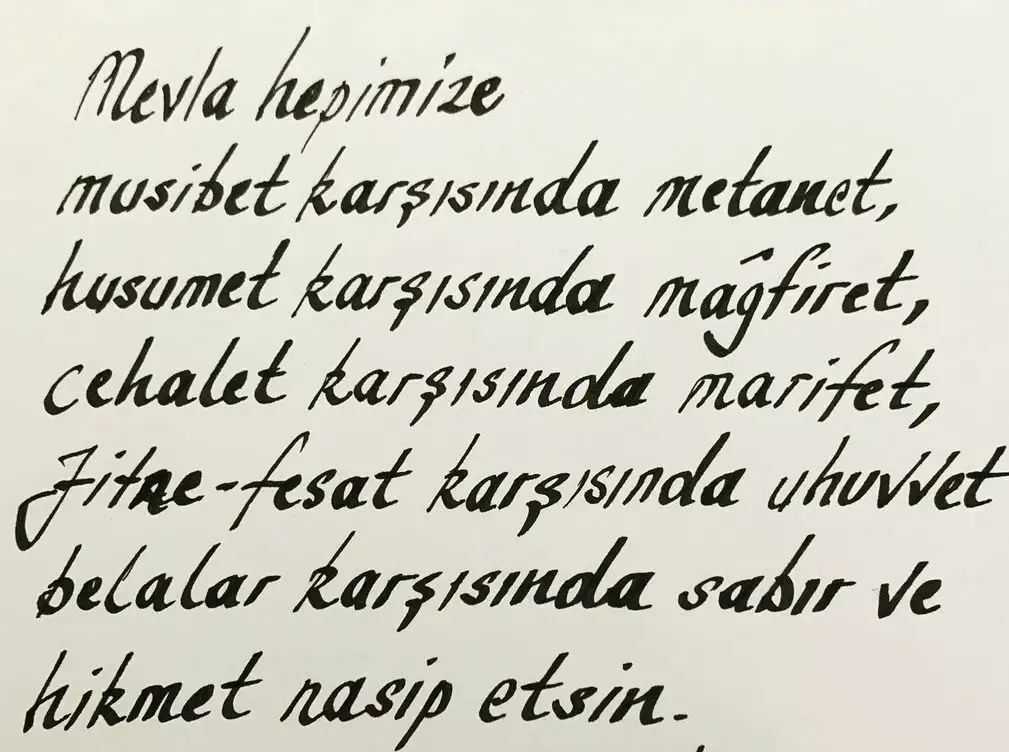 Mevla hepimize
musibet karşısında metanet,
husumet karşısında mâğfiret,
cehalet karşısında marifet,
Fitne-fesat karşısında uhuvvet
belalar karşısında sabır ve
hikmet nasip etsin.